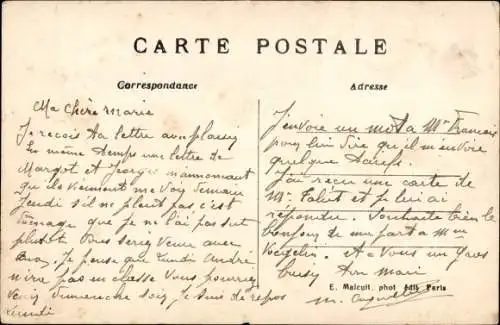 CARTE POSTALE
Correspondance
Adresse
Ma Chère Marie
Je reçois ta lettre avec plaisir
En même temps une lettre de
Margot et Georges m'annoncant
qu'ils viennent me voir demain
Jeudi s'il ne pleut pas c'est
dommage que je ne l'ai pas sut
plutôt vous seriez venue avec
eux. Je pense que Lundi André
n'ire pas en classe vous pourriez
venir dimanche soir je suis de repos
Lundi
J'envoie un mot a Mr Francais
pour lui dire qu'il m'envoie
quelque
J'ai reçu une carte de
Mr et je lui ai
répondu. Souhaite bien le
bonjour de ma part a Mme
A vous un gros
Ton Mari
E. Malcuit, phot édit. Paris